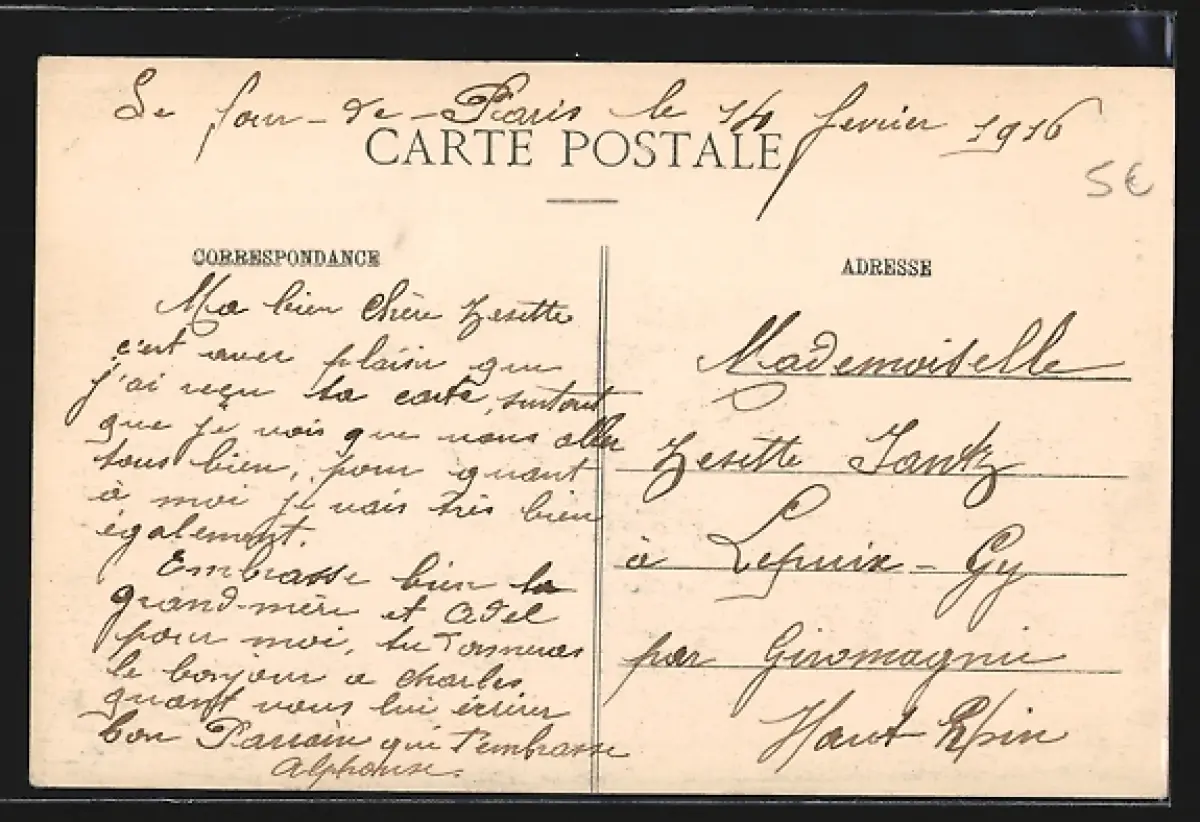 Le four-de-Paris le 14 fevrier 1916
CARTE POSTALE
5€
CORRESPONDANCE
Ma bien chère Zesette
c'est avec plaisir que
j'ai reçu ta carte, surtout
que je vois que vous aller
tous bien, pour quant
à moi je vais très bien
également.
Embrasse bien la
grand-mère et Adel
pour moi, tu donneras
le bonjour a Charles
quant vous lui écrirer
ton Parrain qui t'embrasse
Alphonse.
ADRESSE
Mademoiselle
Zesette Jantz
à Lepuix-Gy
par Giromagnie
Haut Rhin